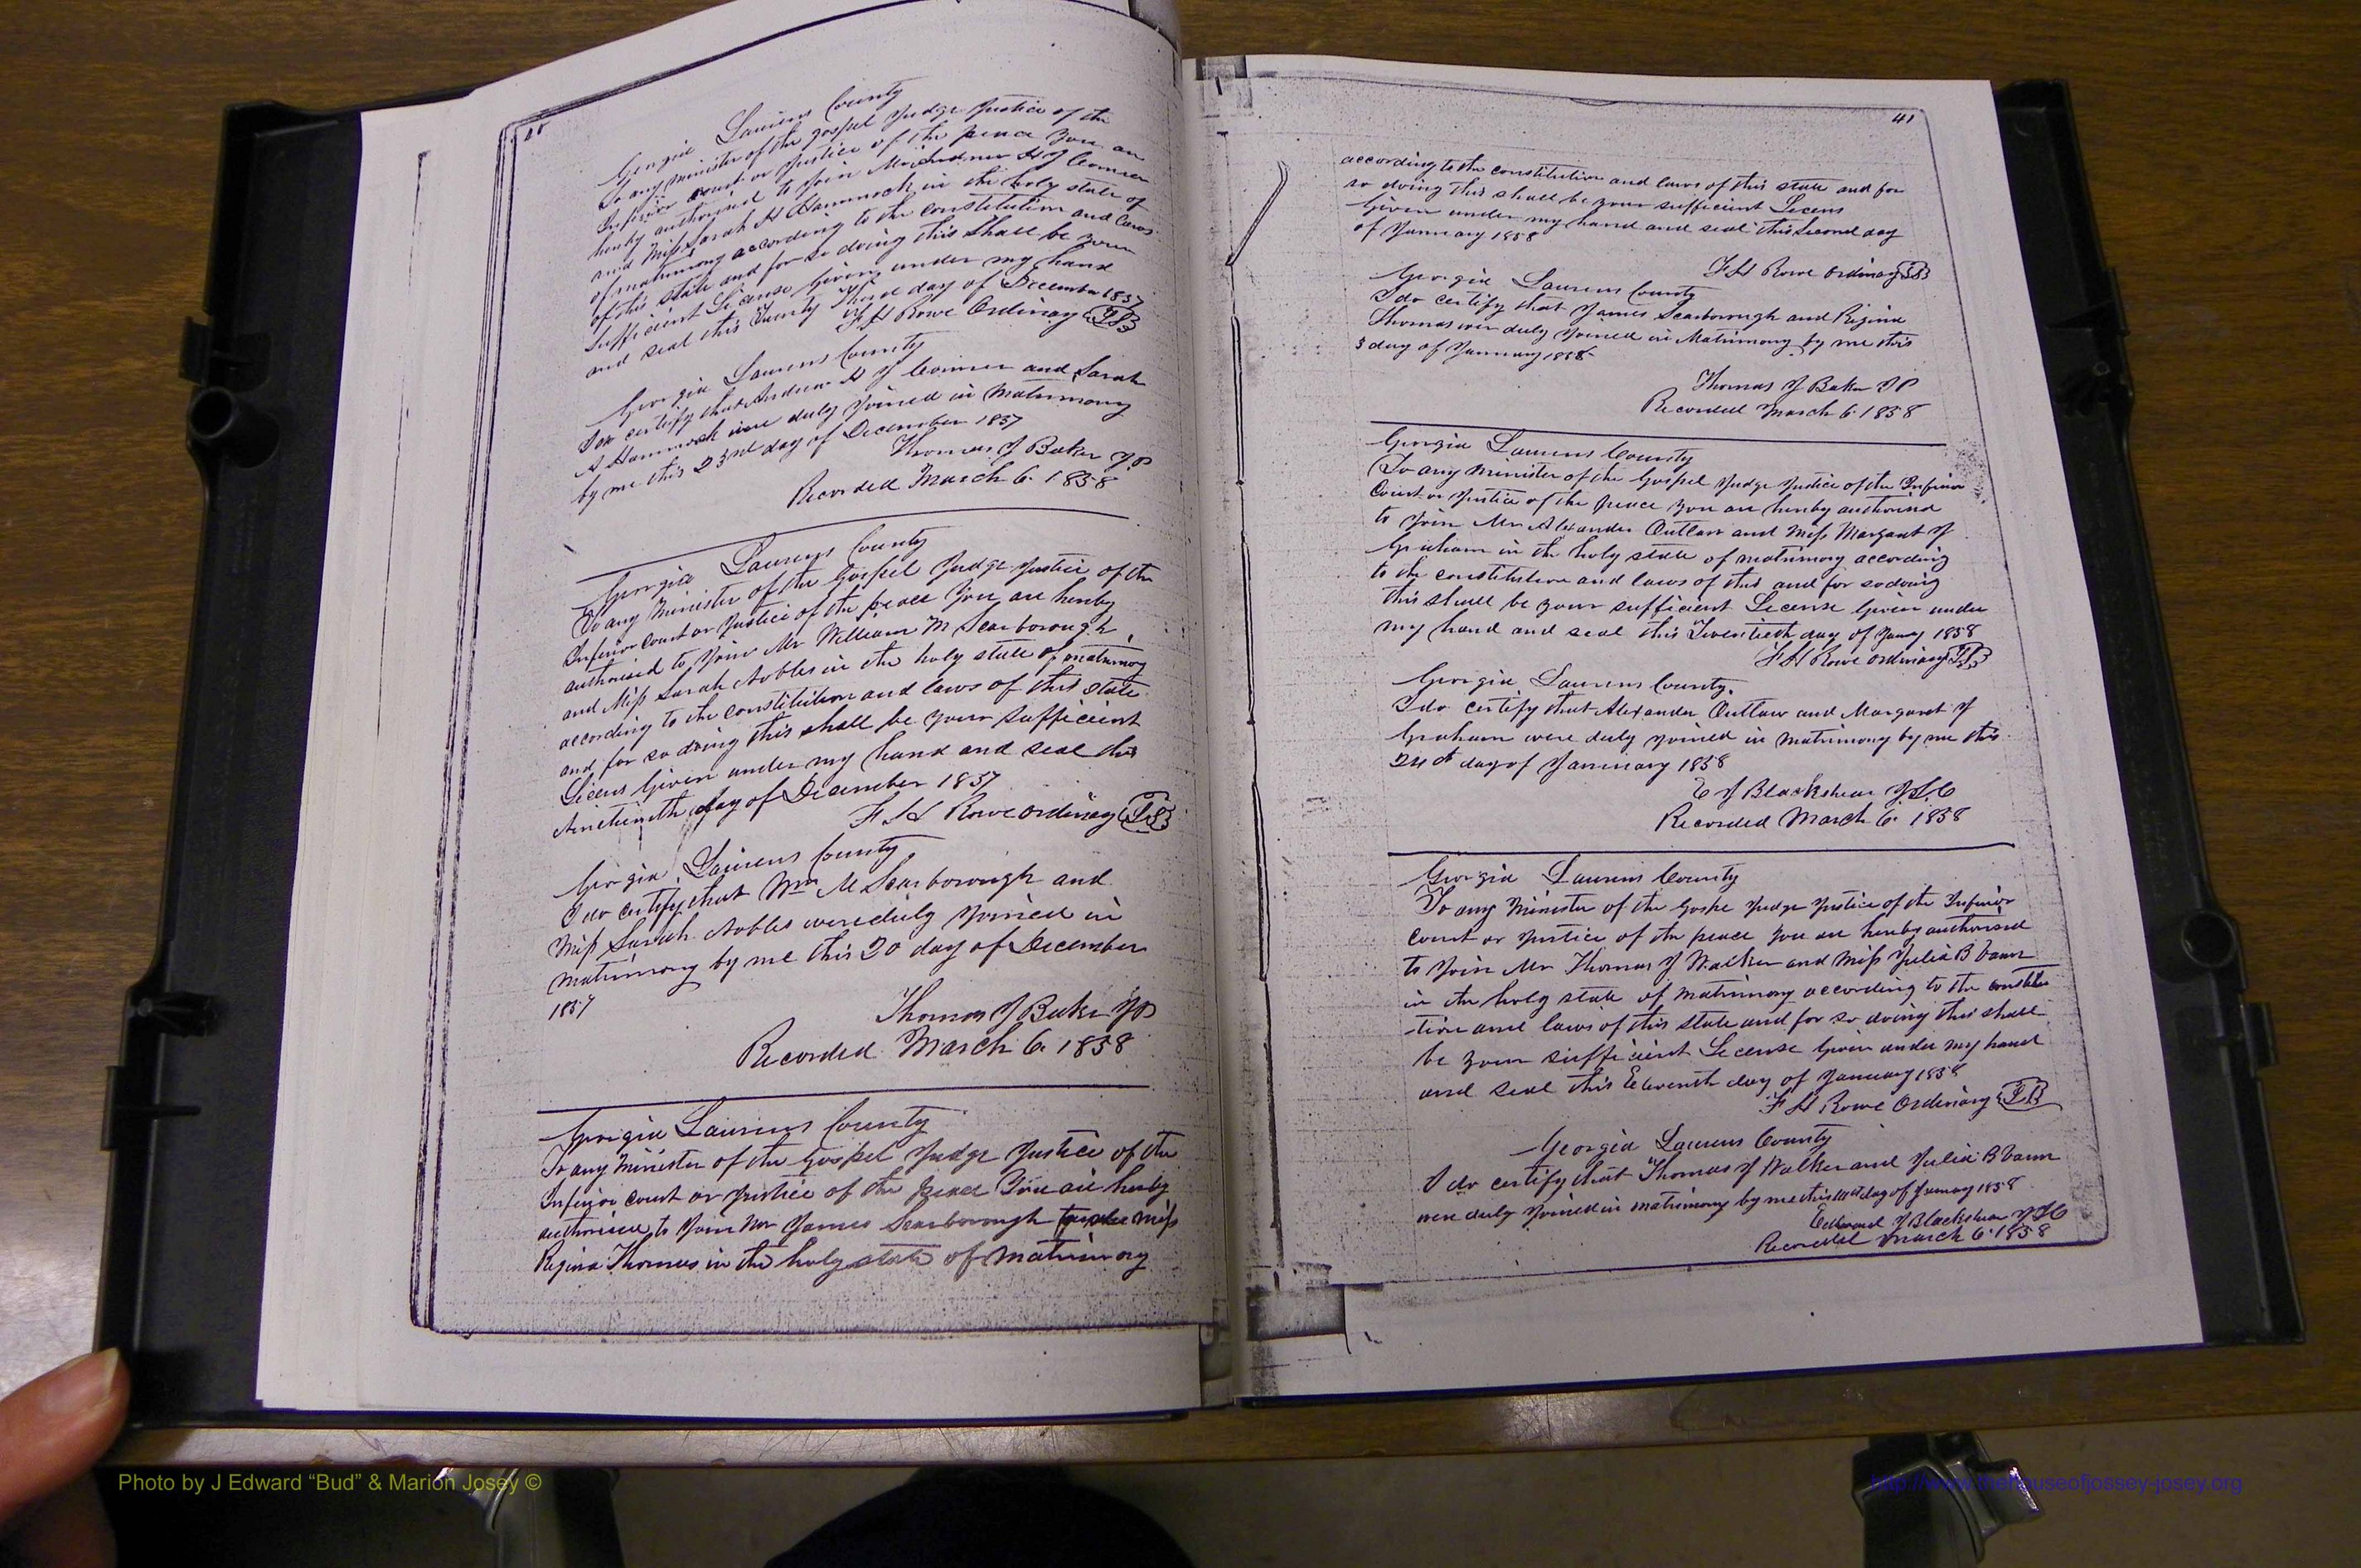 40
Georgia Laurens County
To any minister of the gospel Judge Justice of the
Inferior court or Justice of the peace You are
hereby authorised to Join Mr Andrew H J Conner
and Miss Sarah A Hammock in the holy state of
of matrimony according to the constitution and laws
of this state and for so doing this shall be your
sufficient License Given under my hand
and seal this day of December 1857
F H Rowe Ordinary L.S.
Georgia Laurens County
I do certify that Andrew H J Conner and Sarah
A Hammock were duly Joined in Matrimony
by me this 23rd day of December 1857
Thomas J Baker J.P
Recorded March 6. 1858
Georgia Laurens County
To any Minister of the Gospel Judge Justice of the
Inferior Court or Justice of the peace You are hereby
authorised to Join Mr William M Scarborough
and Miss Sarah Nobles in the holy state of matrimoy
according to the constitution and laws of this state
and for so doing this shall be your sufficient
Licens Given under my hand and seal this
Nineteenth day of December 1857
F H Rowe ordinary L.S.
Georgia Laurens County
I do certify that Wm M Scarborough and
Miss Sarah Nobles were duly Joined in
matrimony by me this 20 day of December
1857
Thomas J Baker JP
Recorded March 6. 1858
Georgia Laurens County
To any Minister of the Gospel Judge Justice of the
Inferior court or Justice of the peace You are hereby
authorised to Join Mr James Scarborough Miss
Regina Thomas in the holy state of matrimony
41
according to the constitution and laws of this state and for
so doing this shall be your sufficient Licens
Given under my hand and seal this second day
of January 1858
F H Rowe Ordinary L.S.
Georgia Laurens County
I do certify that James Scarborough and Regina
Thomas wer duly Joined in Matrimony by me this
3 day of January 1858
Thomas J Baker J P
Recorded March 6. 1858
Georgia Laurens County
To any Minister of the Gospel Judge Justice of the Inferior
Court or Justice of the peace You are hereby authorised
to Join Mr Alexander Outlaw and Miss Margaret J
Graham in the holy state of matrimony according
to the constitution and laws of this and for so doing
this shall be your sufficient License Given under
my hand and seal this Twentieth day of Jany 1858
F H Rowe ordinary L.S.
Georgia Laurens County.
I do certify that Alexander Outlaw and Margaret J
Graham were duly Joined in matrimony by me this
24th day of January 1858
E J Blackshear J.I.C
Recorded March 6. 1858
Georgia Laurens County
To any Minister of the Gospe Judge Justice of the Inferior
court or Justice of the peace You are hereby authorised
to Join Mr Thomas J Walker and Miss Julia B Vann
in the holy state of matrimony according to the constitu
-tion and laws of this state and for so doing this shall
be your sufficient License Given under my hand
and seal this Eleventh day of January 1858
F H Rowe Ordinary L.S.
Georgia Laurens County
I do certify that Thomas J Walker and Julia B Vann
were duly Joined in matrimony by me this day of January 1858
Edward J Blackshear J I C
Recorded March 6. 1858
Photo by J Edward “Bud” & Marion Josey ©
http://www.thehouseofjossey-josey.org